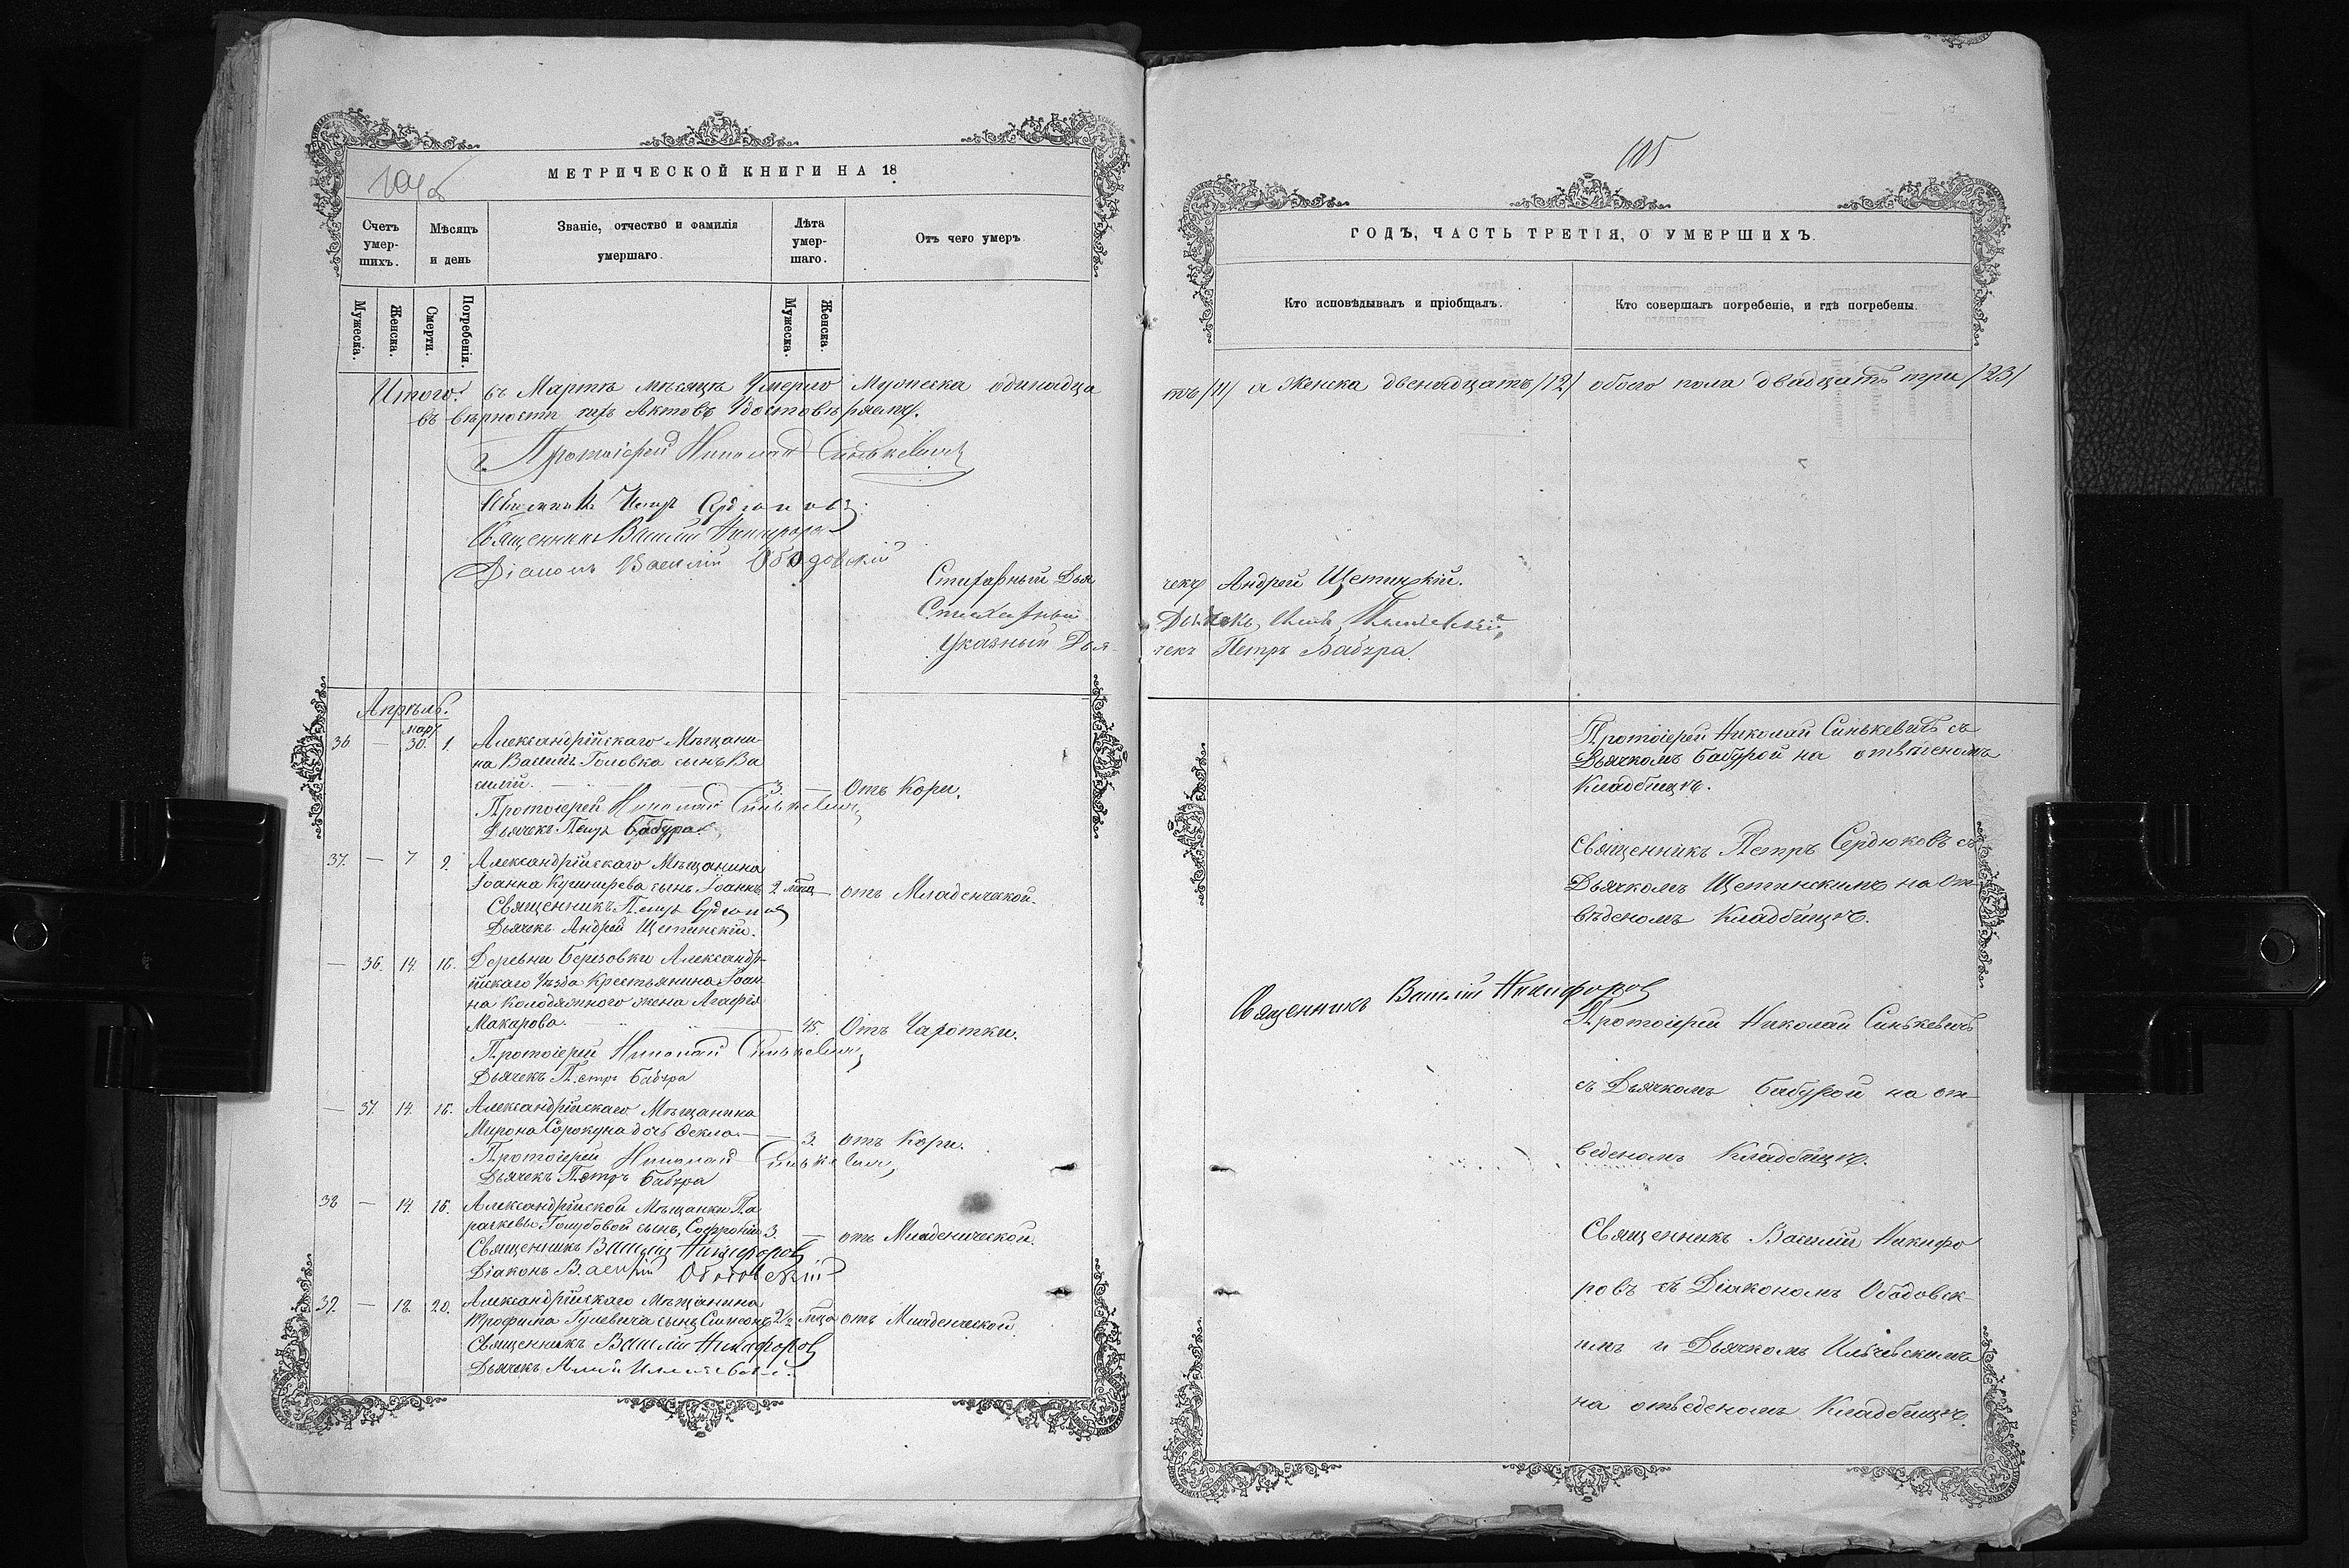 105
МЕТРИЧЕСКОЙ КНИГИ НА 18
Счетъ умер-шихъ.
Мѣсяцъ и день
Званіе, отчество и фамилія умершаго.
Лѣта умер-шаго.
Отъ чего умеръ
Мужеска.
Женска.
Смерти.
Погребенія.
Мужеска.
Женска.
Итого: въ Мартѣ мѣсяцѣ Умерло Мужеска одинадца
въ вѣрности сихъ Актовъ Удостовѣряемъ.
Протоіерей Николай Синькевичъ
Священникъ Петръ Сердюковъ.
Священникъ Василій Никифоровъ
Діаконъ Василій Ободовскій
Стихарный Дья
Стихарный
Указный Дья
Апрѣль.
март
36. — 30. 1. Александрійскаго Мѣщани
на Василія Головка сынъ Ва
силій. — 3. — Отъ Кори.
Протоіерей Николай Синькевичъ
Дьячекъ Петръ Бабура.
37. — 7 9. Александрійскаго Мѣщанина
Іоанна Кушнирева сынъ Іоаннъ 2 мца — отъ Младенческой.
Священникъ Петръ Сердюковъ
Дьячекъ Андрей Щетинскій.
— 36. 14. 16. Деревни Березовки Александр-
ійскаго Уѣзда Крестьянина Іоан
на Колодяжного жена Агафія
Макарова. — 45. Отъ Чахотки.
Протоіерей Николай Синькевичъ
Дьячекъ Петръ Бабура
— 37. 14. 16. Александрійскаго Мѣщанина
Мирона Сорокуна дочь Ѳекла. — 3. отъ Кори.
Протоіерей Николай Синькевичъ
Дьячекъ Петръ Бабура
38 — 14. 16. Александрійской Мѣщанки Па
расковьи Голубовой сынъ Софроній 3. — отъ Младенической.
Священникъ Василій Никифоровъ
Діаконъ Василій Ободовскій
39. — 18. 20. Александрійскаго Мѣщанина
Трофима Гулевича сынъ Симеонъ 2½ мца отъ Младенческой
Священникъ Василій Никифоровъ
Дьячекъ
ГОДЪ, ЧАСТЬ ТРЕТІЯ, О УМЕРШИХЪ.
Кто исповѣдывалъ и пріобщалъ.
Кто совершалъ погребеніе, и гдѣ погребены.
ть /11/ а Женска двенадцать /12/ обоего пола двадцать три /23/
чекъ Андрей Щетинскій.
Дьячекъ
чекъ Петръ Бабура.
Протоіерей Николай Синькевичъ съ
Дьячкомъ Бабурой на отведеномъ
Кладбищѣ.
Священникъ Петръ Сердюковъ съ
Дьячкомъ Щетинскимъ на От-
веденомъ Кладбищѣ.
Священникъ Василій Никифоровъ
Протоіерей Николай Синькевичъ
съ Дьячкомъ Бабурой на от-
веденомъ Кладбищѣ.
Священникъ Василій Никифо
ровъ съ Діакономъ Ободовск-
имъ и Дьячкомъ Ильчевскимъ
на отведеномъ Кладбищѣ.